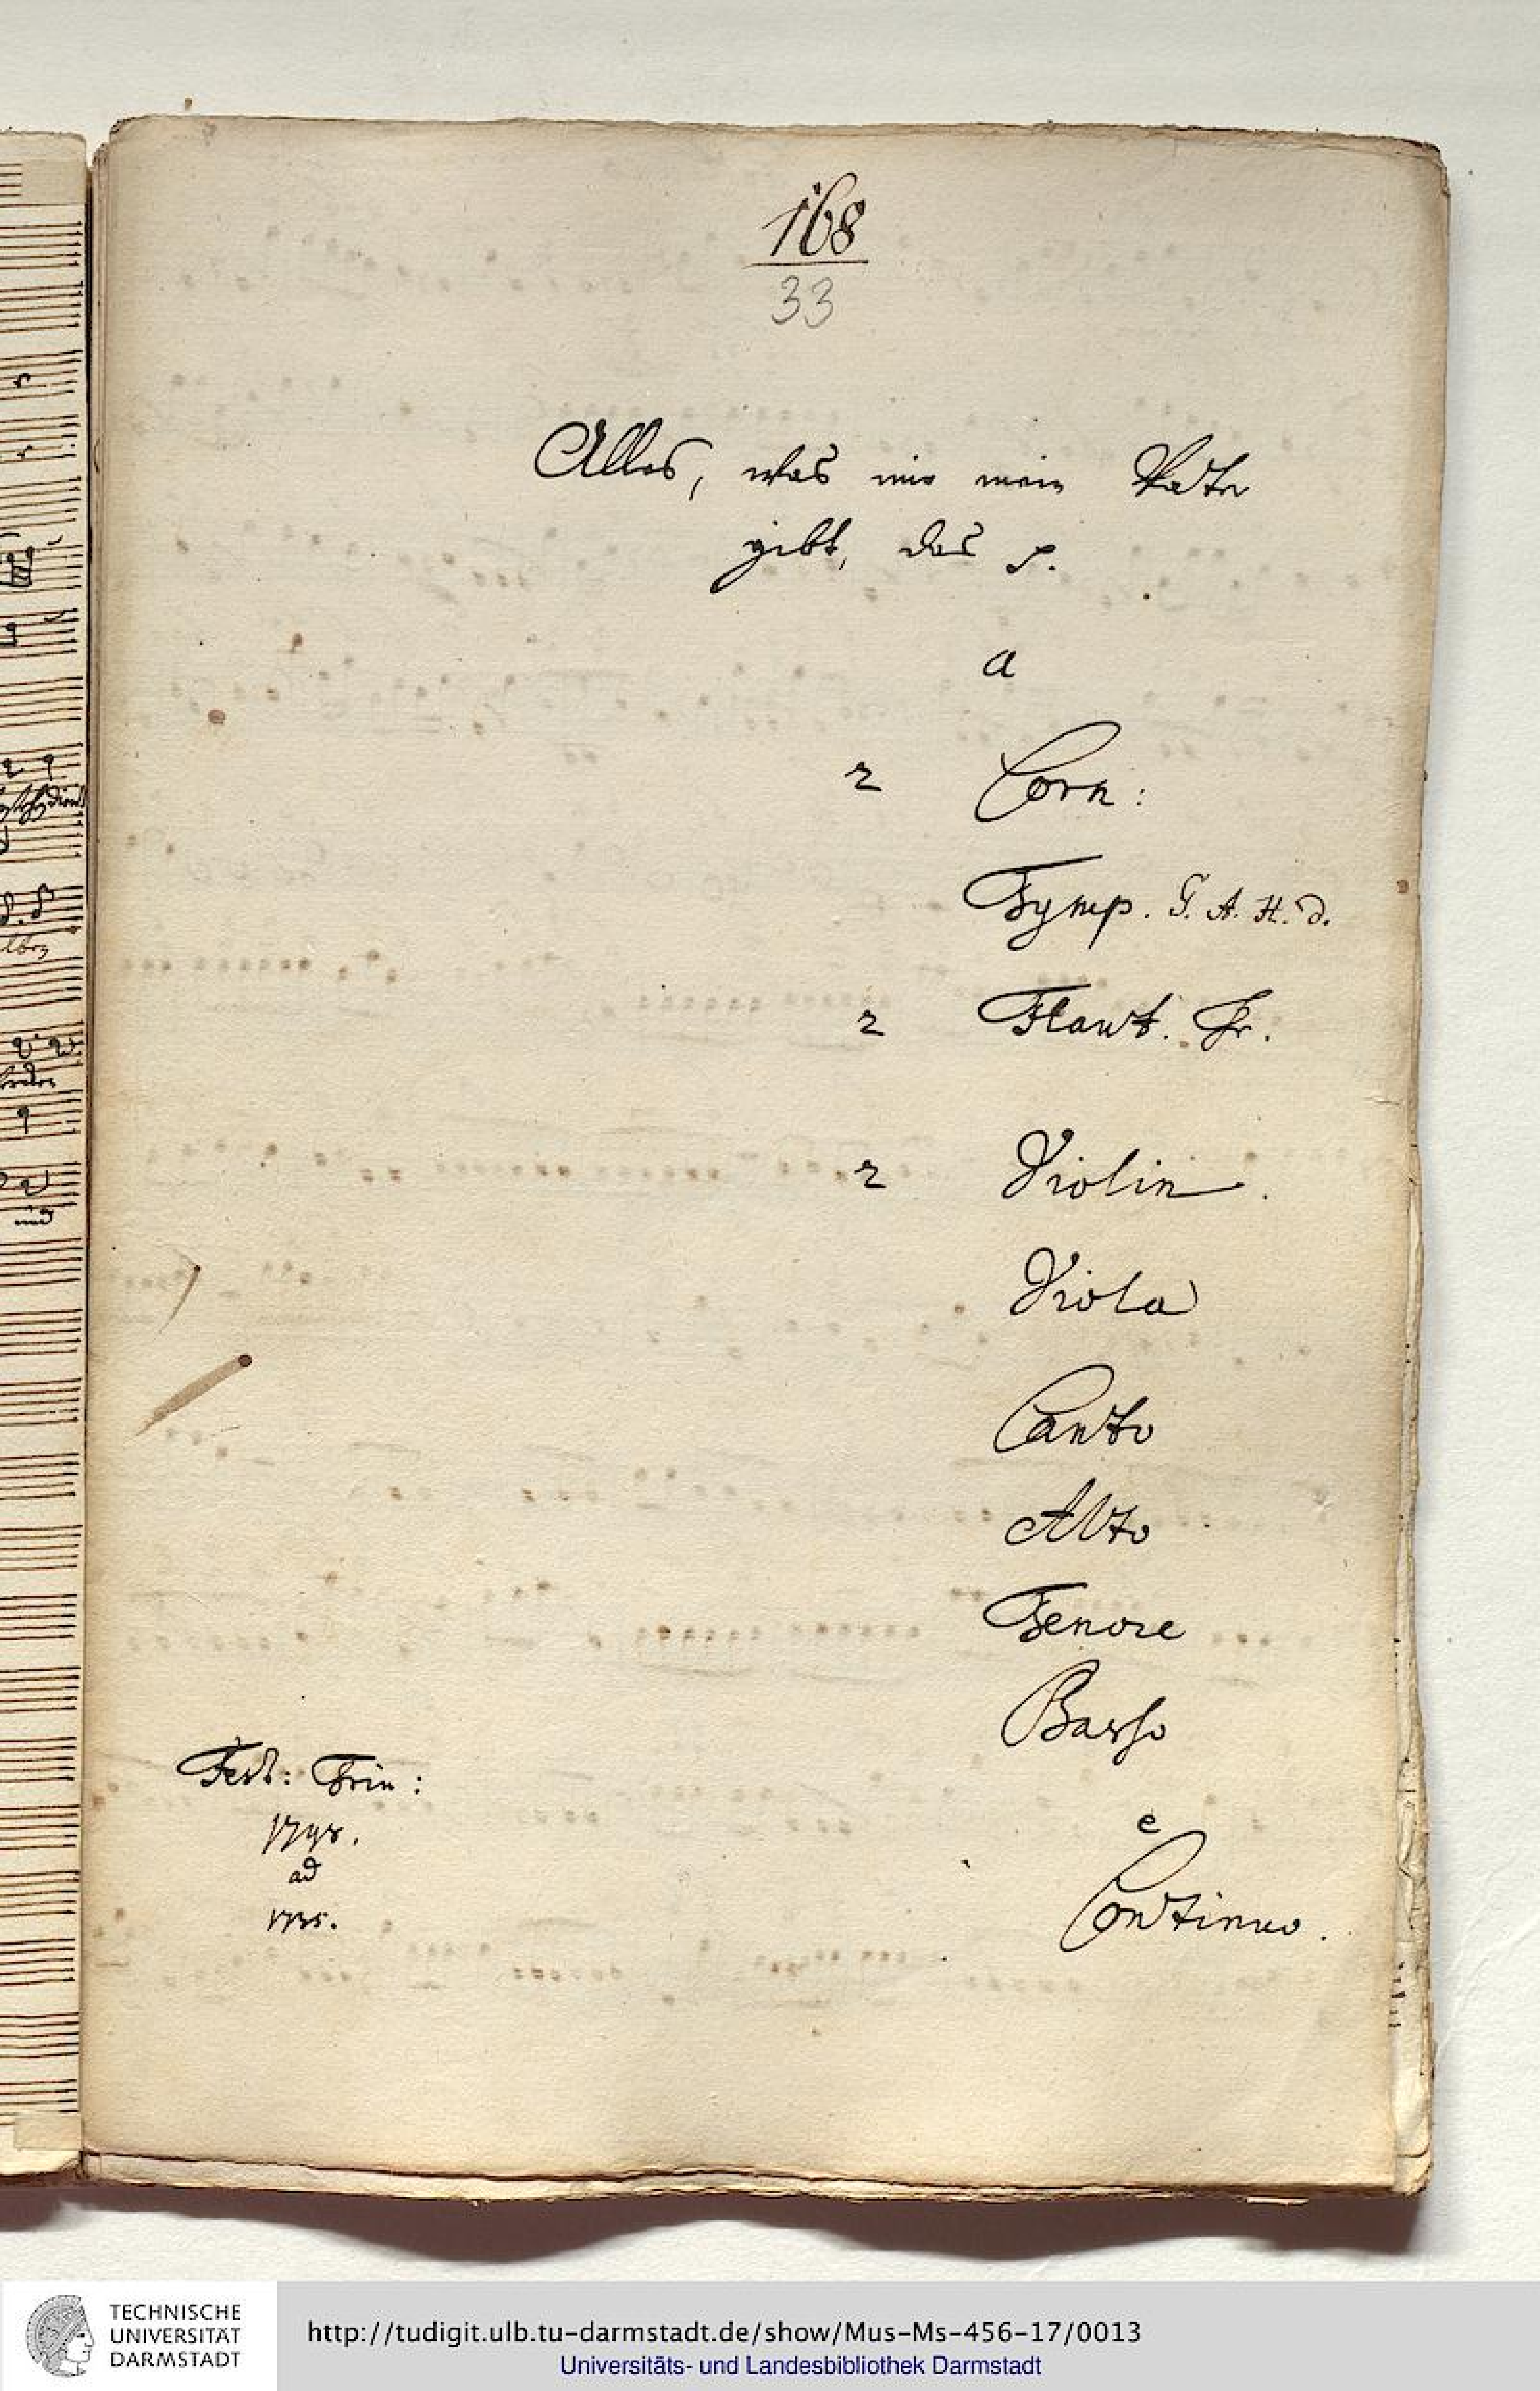 168
33
Alles, was mir mein Vater
gibt, das p.
a
2 Corn:
Tymp. G. A. H. d.
2 Flaut. Tr.
2 Violin.
Viola
Canto
Alto
Tenore
Basso
e
Continuo.
Fest: Trin:
1748.
ad
1735.
TECHNISCHE
UNIVERSITÄT
DARMSTADT
http://tudigit.ulb.tu-darmstadt.de/show/Mus-Ms-456-17/0013
Universitäts- und Landesbibliothek Darmstadt